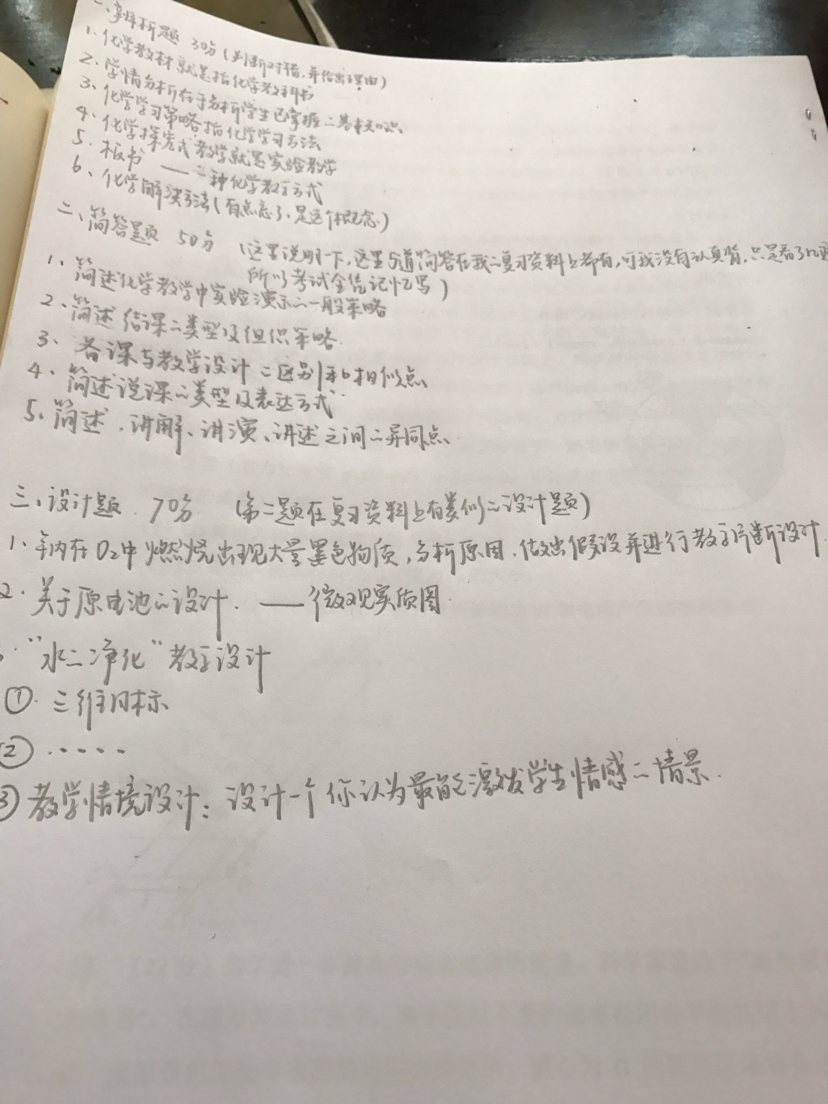 一、辨析题 30分(判断对错,并给出理由)
1. 化学教材就是指化学教科书
2. 学情分析在于分析学生已掌握的基本知识
3. 化学学习策略指化学学习方法
4. 化学探究式教学就是实验教学
5. 板书 —— 一种化学教学方式
6. 化学解决方法(有点忘了,是这个概念)
二、简答题 50分 (这里说明一下,这里5道简答在我的复习资料上都有,可我没有认真背,只是看了几遍
所以考试全凭记忆写)
1、简述化学教学中实验演示的一般策略
2、简述结课的类型及组织策略.
3、备课与教学设计的区别和相似点
4、简述说课的类型及表达方式
5、简述、讲解、讲演、讲述之间的异同点.
三、设计题. 70分 (第二题在复习资料上有类似的设计题)
1. 在O₂中燃烧出现大量黑色物质,分析原因.做出假设并进行教学片断设计.
2. 关于原电池的设计. —— 微观实质图.
"水的净化"教学设计
①. 三维目标
② .....
③ 教学情境设计:设计一个你认为最能激发学生情感的情景.